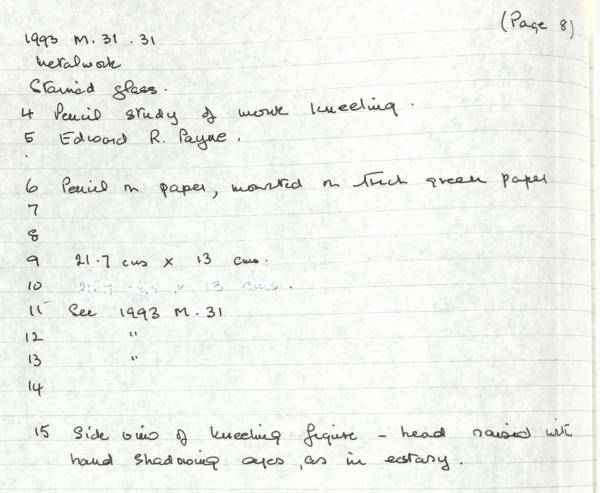 (Page 8)
1993 M.31.31
Metalwork
Stained glass.
4 Pencil study of monk kneeling.
5 Edward R. Payne.
6 Pencil on paper, mounted on thick green paper
7
8
9 21.7 cms x 13 cms.
10 21.7 cms x 13 cms.
11 See 1993 M.31
12 "
13 "
14
15 Side view of kneeling figure - head raised with
hand shadowing eyes, as in ecstasy.